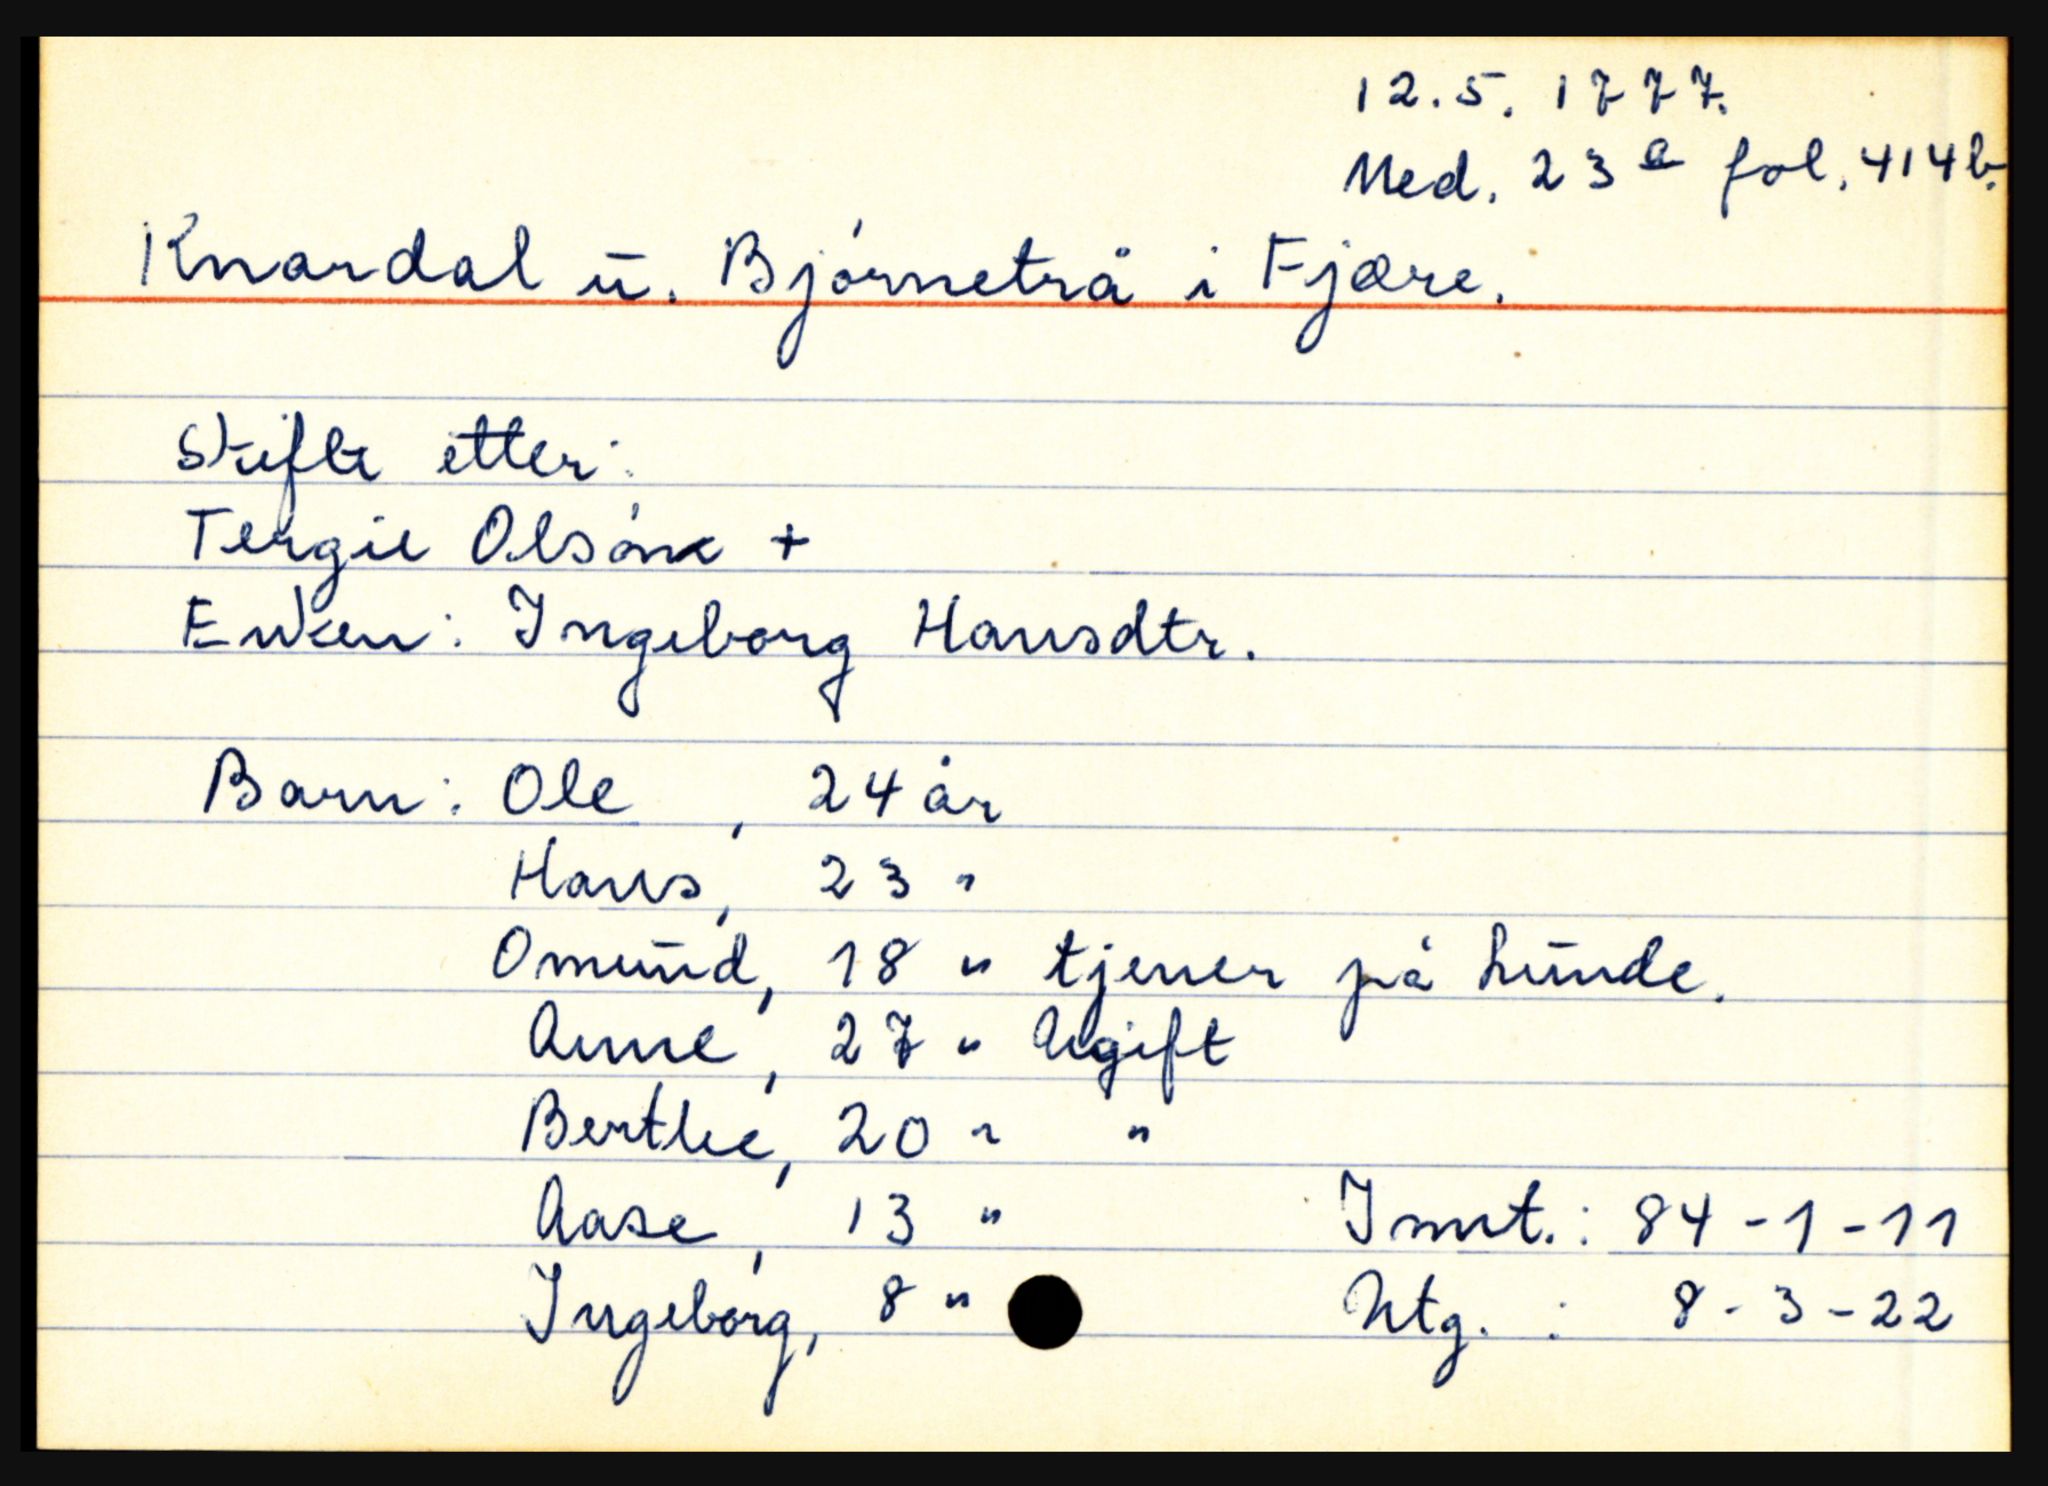 12.5. 1777.
Ned. 23 a fol. 414b.
Knardal u. Bjórnetrå i Fjære.
Skifte etter:
Tergie Olsón +
Enken: Ingeborg Hansdtr.
Barn: Ole , 24 år
Hans, 23 "
Omund, 18 " tjener på Lunde.
Anne , 27 " Ugift
Berthe, 20 " "
Aase , 13 " Innt.: 84-1-11
Ingeborg, 8 " Utg. : 8-3-22